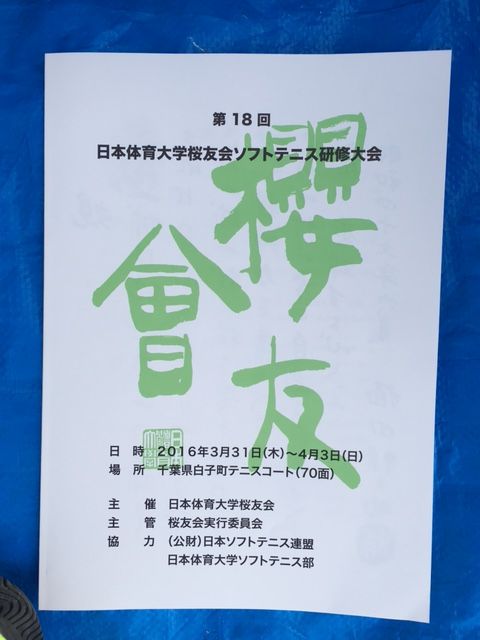 第18回
日本体育大学桜友会ソフトテニス研修大会
櫻友
會
日　時　2016年3月31日(木)～4月3日(日)
場　所　千葉県白子町テニスコート(70面)
主　催　日本体育大学桜友会
主　管　桜友会実行委員会
協　力　(公財)日本ソフトテニス連盟
日本体育大学ソフトテニス部